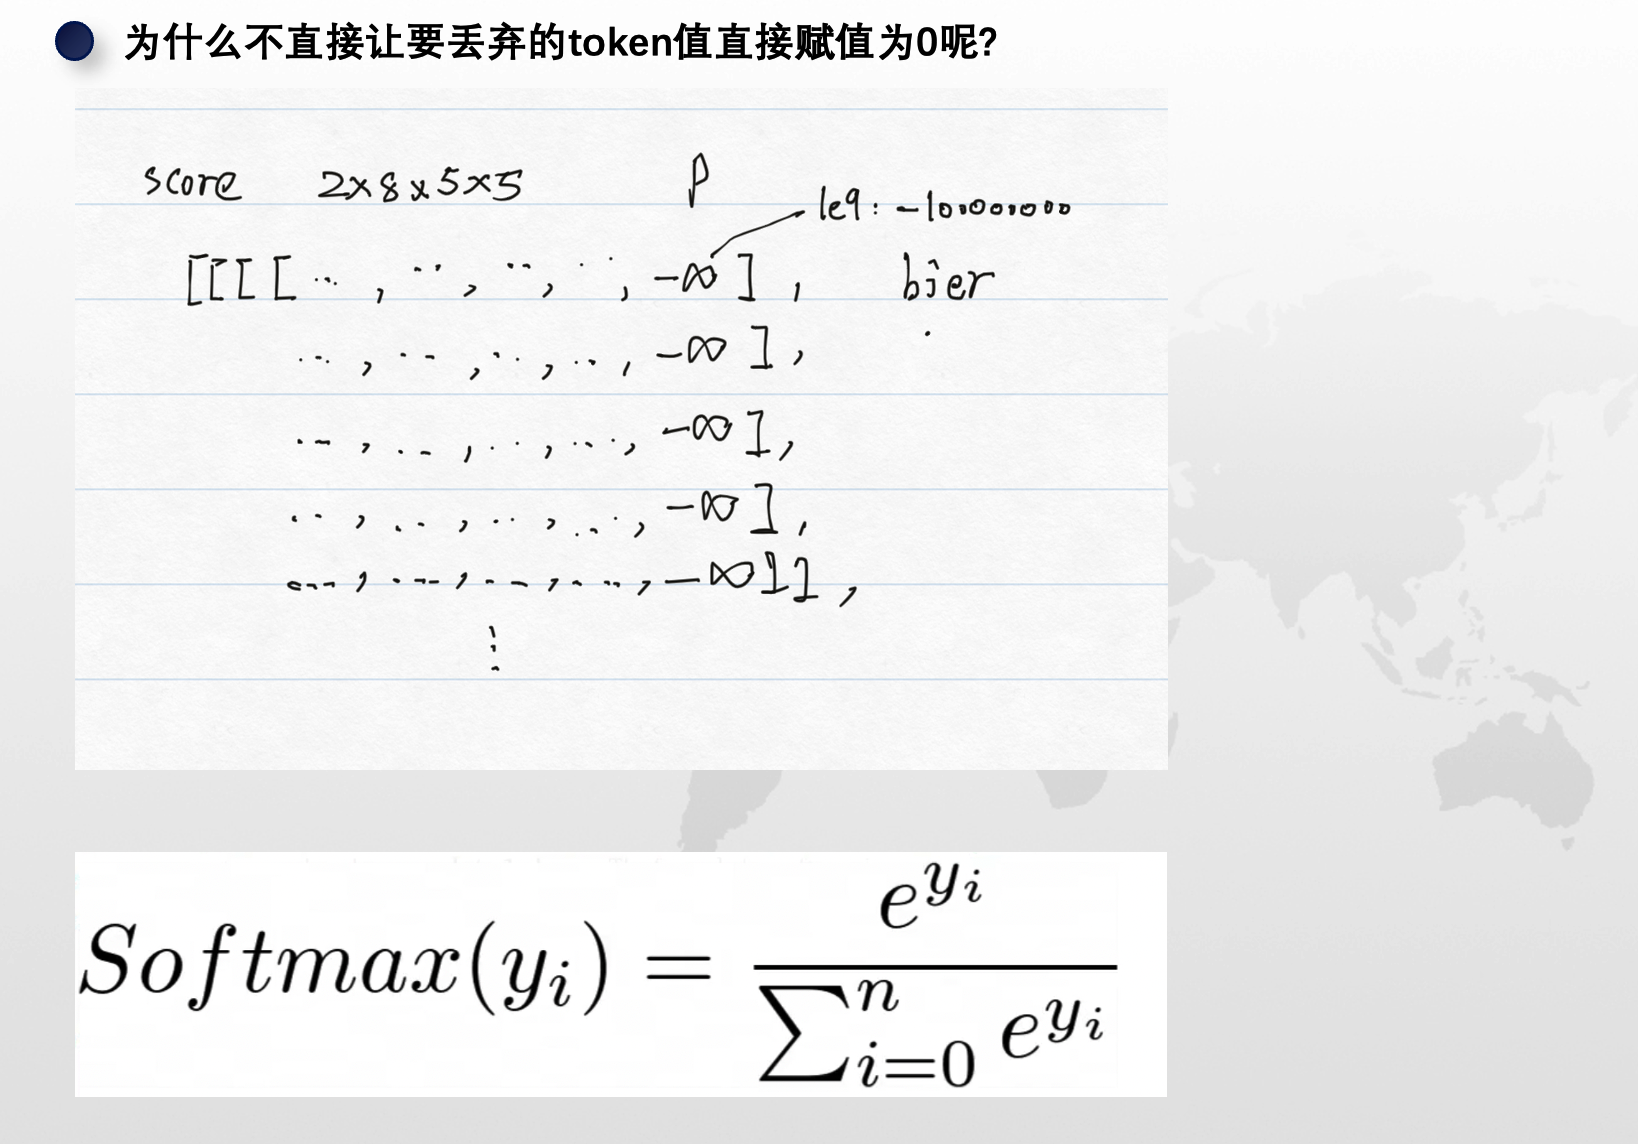 为什么不直接让要丢弃的token值直接赋值为0呢?
score 2x8x5x5 p
le9: -100000000
[[[[ ... , ... , ... , ... , -∞ ] , bier
... , ... , ... , ... , -∞ ] ,
... , ... , ... , ... , -∞ ] ,
... , ... , ... , ... , -∞ ] ,
... , ... , ... , ... , -∞ ]] ,
⋮
Softmax(y_i) = \frac{e^{y_i}}{\sum_{i=0}^{n} e^{y_i}}